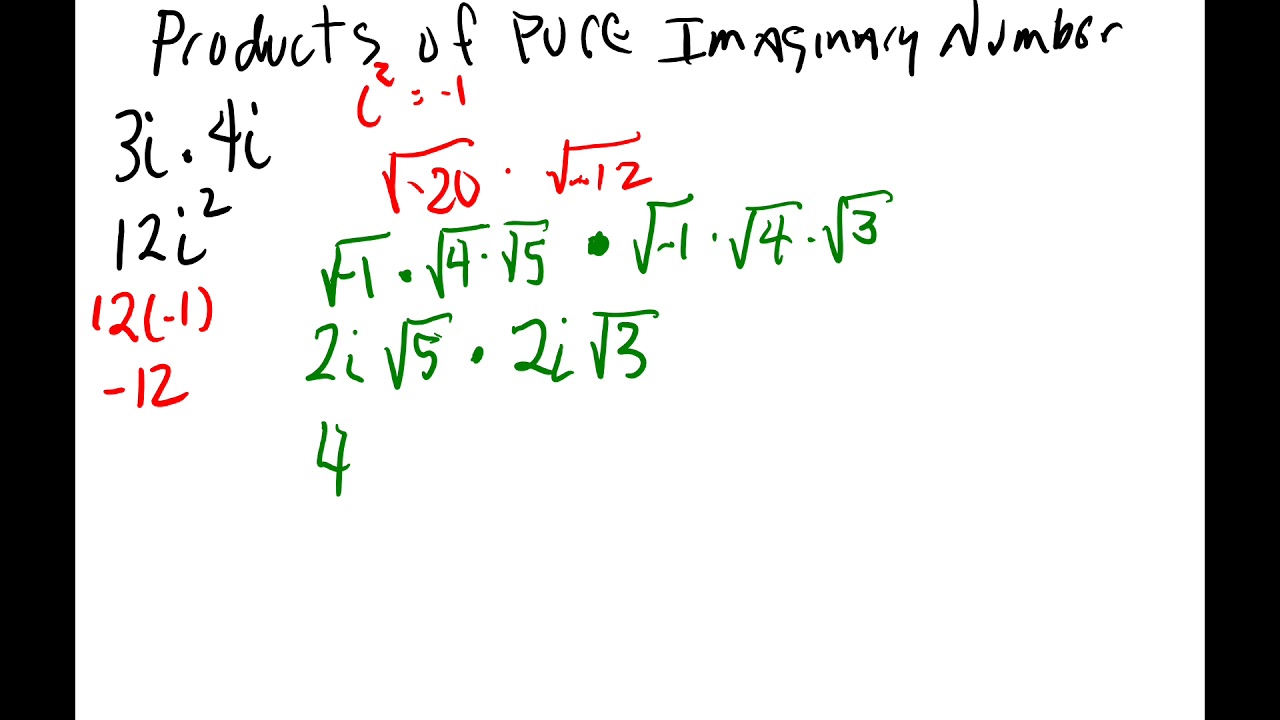 Products of Pure Imaginary Number
i² = -1
3i · 4i
12i²
12(-1)
-12
√-20 · √-12
√-1 · √4 · √5 · √-1 · √4 · √3
2i √5 · 2i √3
4